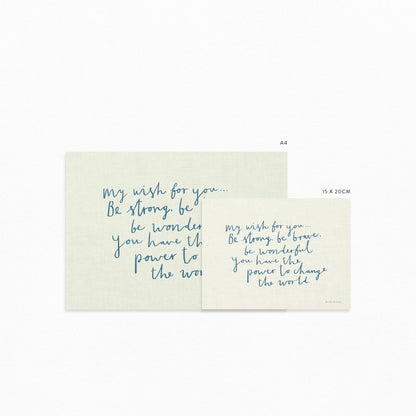 A4
my wish for you...
Be strong, be
be wonder
you have th
power to
the wor
15 X 20CM
my wish for you...
Be strong, be brave,
be wonderful
you have the
power to change
the world